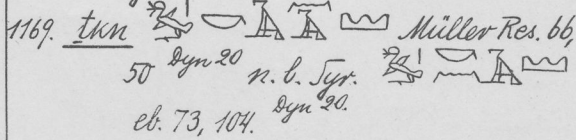 1169. ṯkn Müller Res. 66,
50 Dyn 20 n. b. Syr.
eb. 73, 104. Dyn 20.